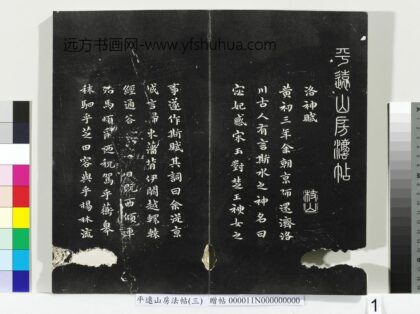 远方书画网-www.yfshuhua.com
平遠山房法帖
枝山
洛神賦
黃初三年余朝京師還濟洛
川古人有言斯水之神名曰
宓妃感宋玉對楚王神女之
事遂作斯賦其詞曰余從京
城言歸東藩背伊闕越轘轅
經通谷陵景山日既西傾車
殆馬煩爾迺稅駕乎蘅皋
秣駟乎芝田容與乎楊林流
平遠山房法帖(三) 贈帖 000011N000000000
1